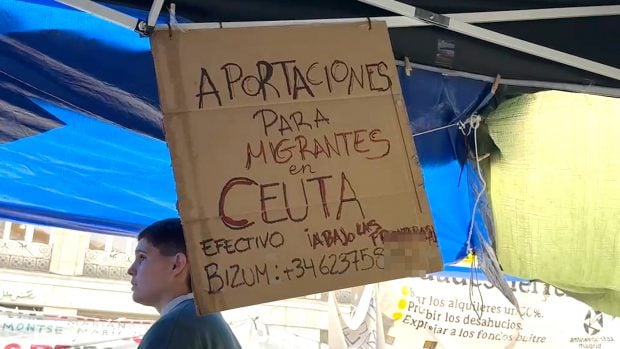 APORTACIONES
PARA
MIGRANTES
en
CEUTA
EFECTIVO ¡ABAJO LAS FRONTERAS!
BIZUM: +34623758
bar los alquileres un 50%.
Prohibir los desahucios.
Expropiar a los fondos buitre
MONTSE
madrid